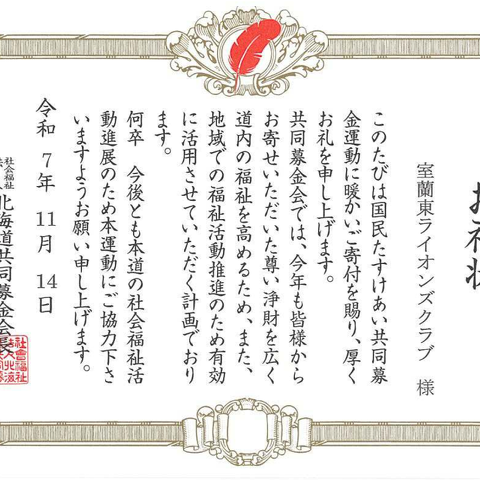 お礼状
室蘭東ライオンズクラブ 様
このたびは国民たすけあい共同募
金運動に暖かいご寄付を賜り、厚く
お礼を申し上げます。
共同募金会では、今年も皆様から
お寄せいただいた尊い浄財を広く
道内の福祉を高めるため、また、
地域での福祉活動推進のため有効
に活用させていただく計画でおり
ます。
何卒 今後とも本道の社会福祉活
動進展のため本運動にご協力下さ
いますようお願い申し上げます。
令和 7年 11月 14日
社会福祉
北海道共同募金会長